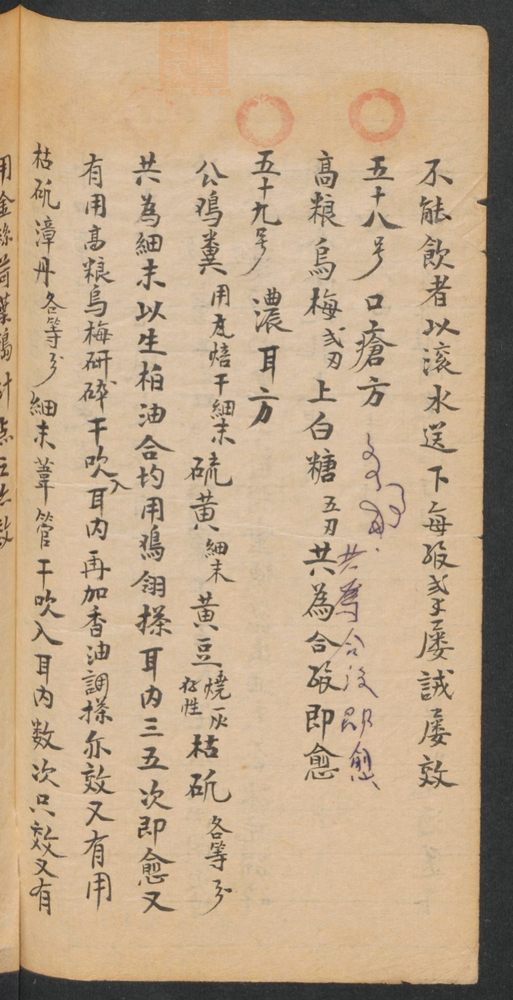 不能飲者以滚水送下每服弍子屡試屡效
五十八号 口瘡方
共為合後即愈
高粮烏梅 弍刃 上白糖 五刃 共為合服即愈
五十九号 濃耳方
公鳮糞 用瓦焙干細末 硫黄 細末 黄豆 燒灰存性 枯矾 各等分
共為細末以生柏油合均用鳮翎搽耳内三五次即愈又
有用高粮烏梅研碎干吹入耳内再加香油調搽亦效又有用
枯矾漳丹 各等分 細末葦管干吹入耳内数次只效又有
用金絲荷葉搗汁